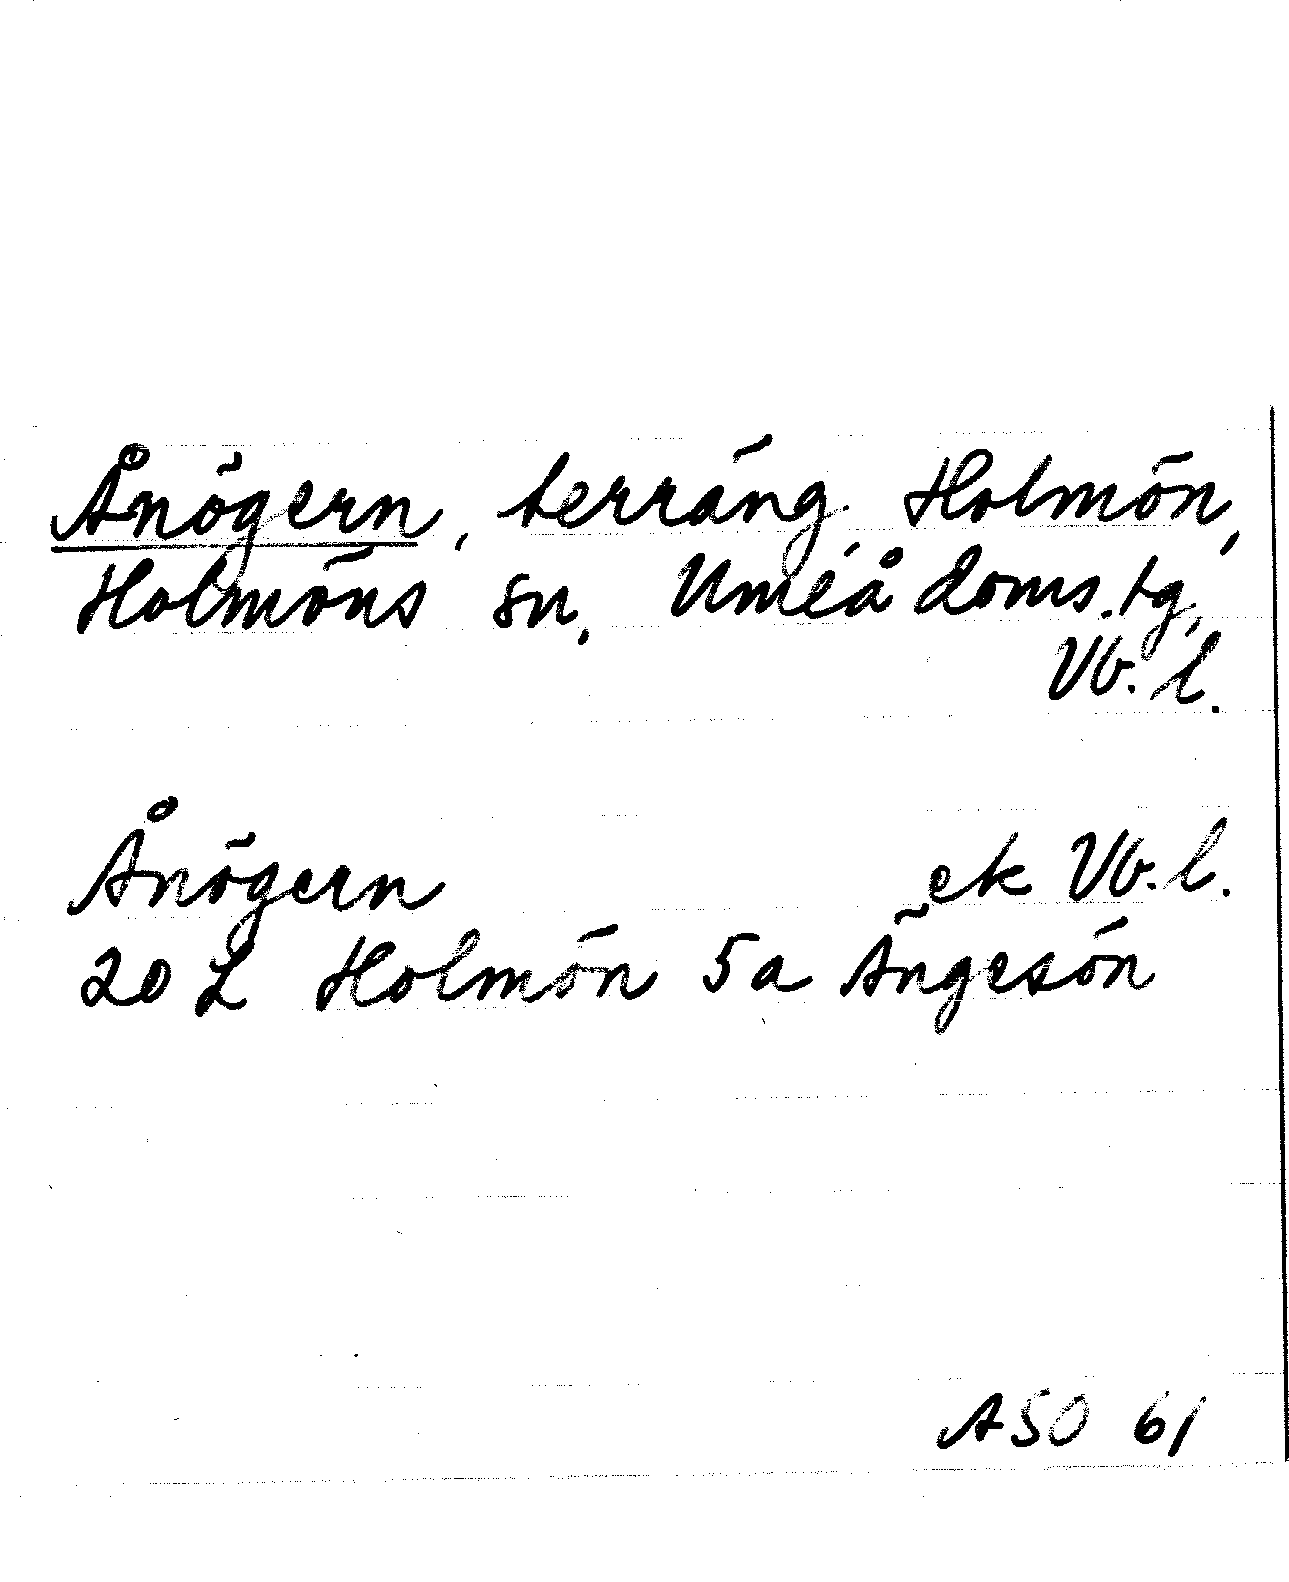 Ånögern, terräng, Holmön,
Holmöns sn, Umeå doms.tg,
Vb. l.
Ånögern ek Vb. l.
20 L Holmön 5a Ängesön
ASO 61